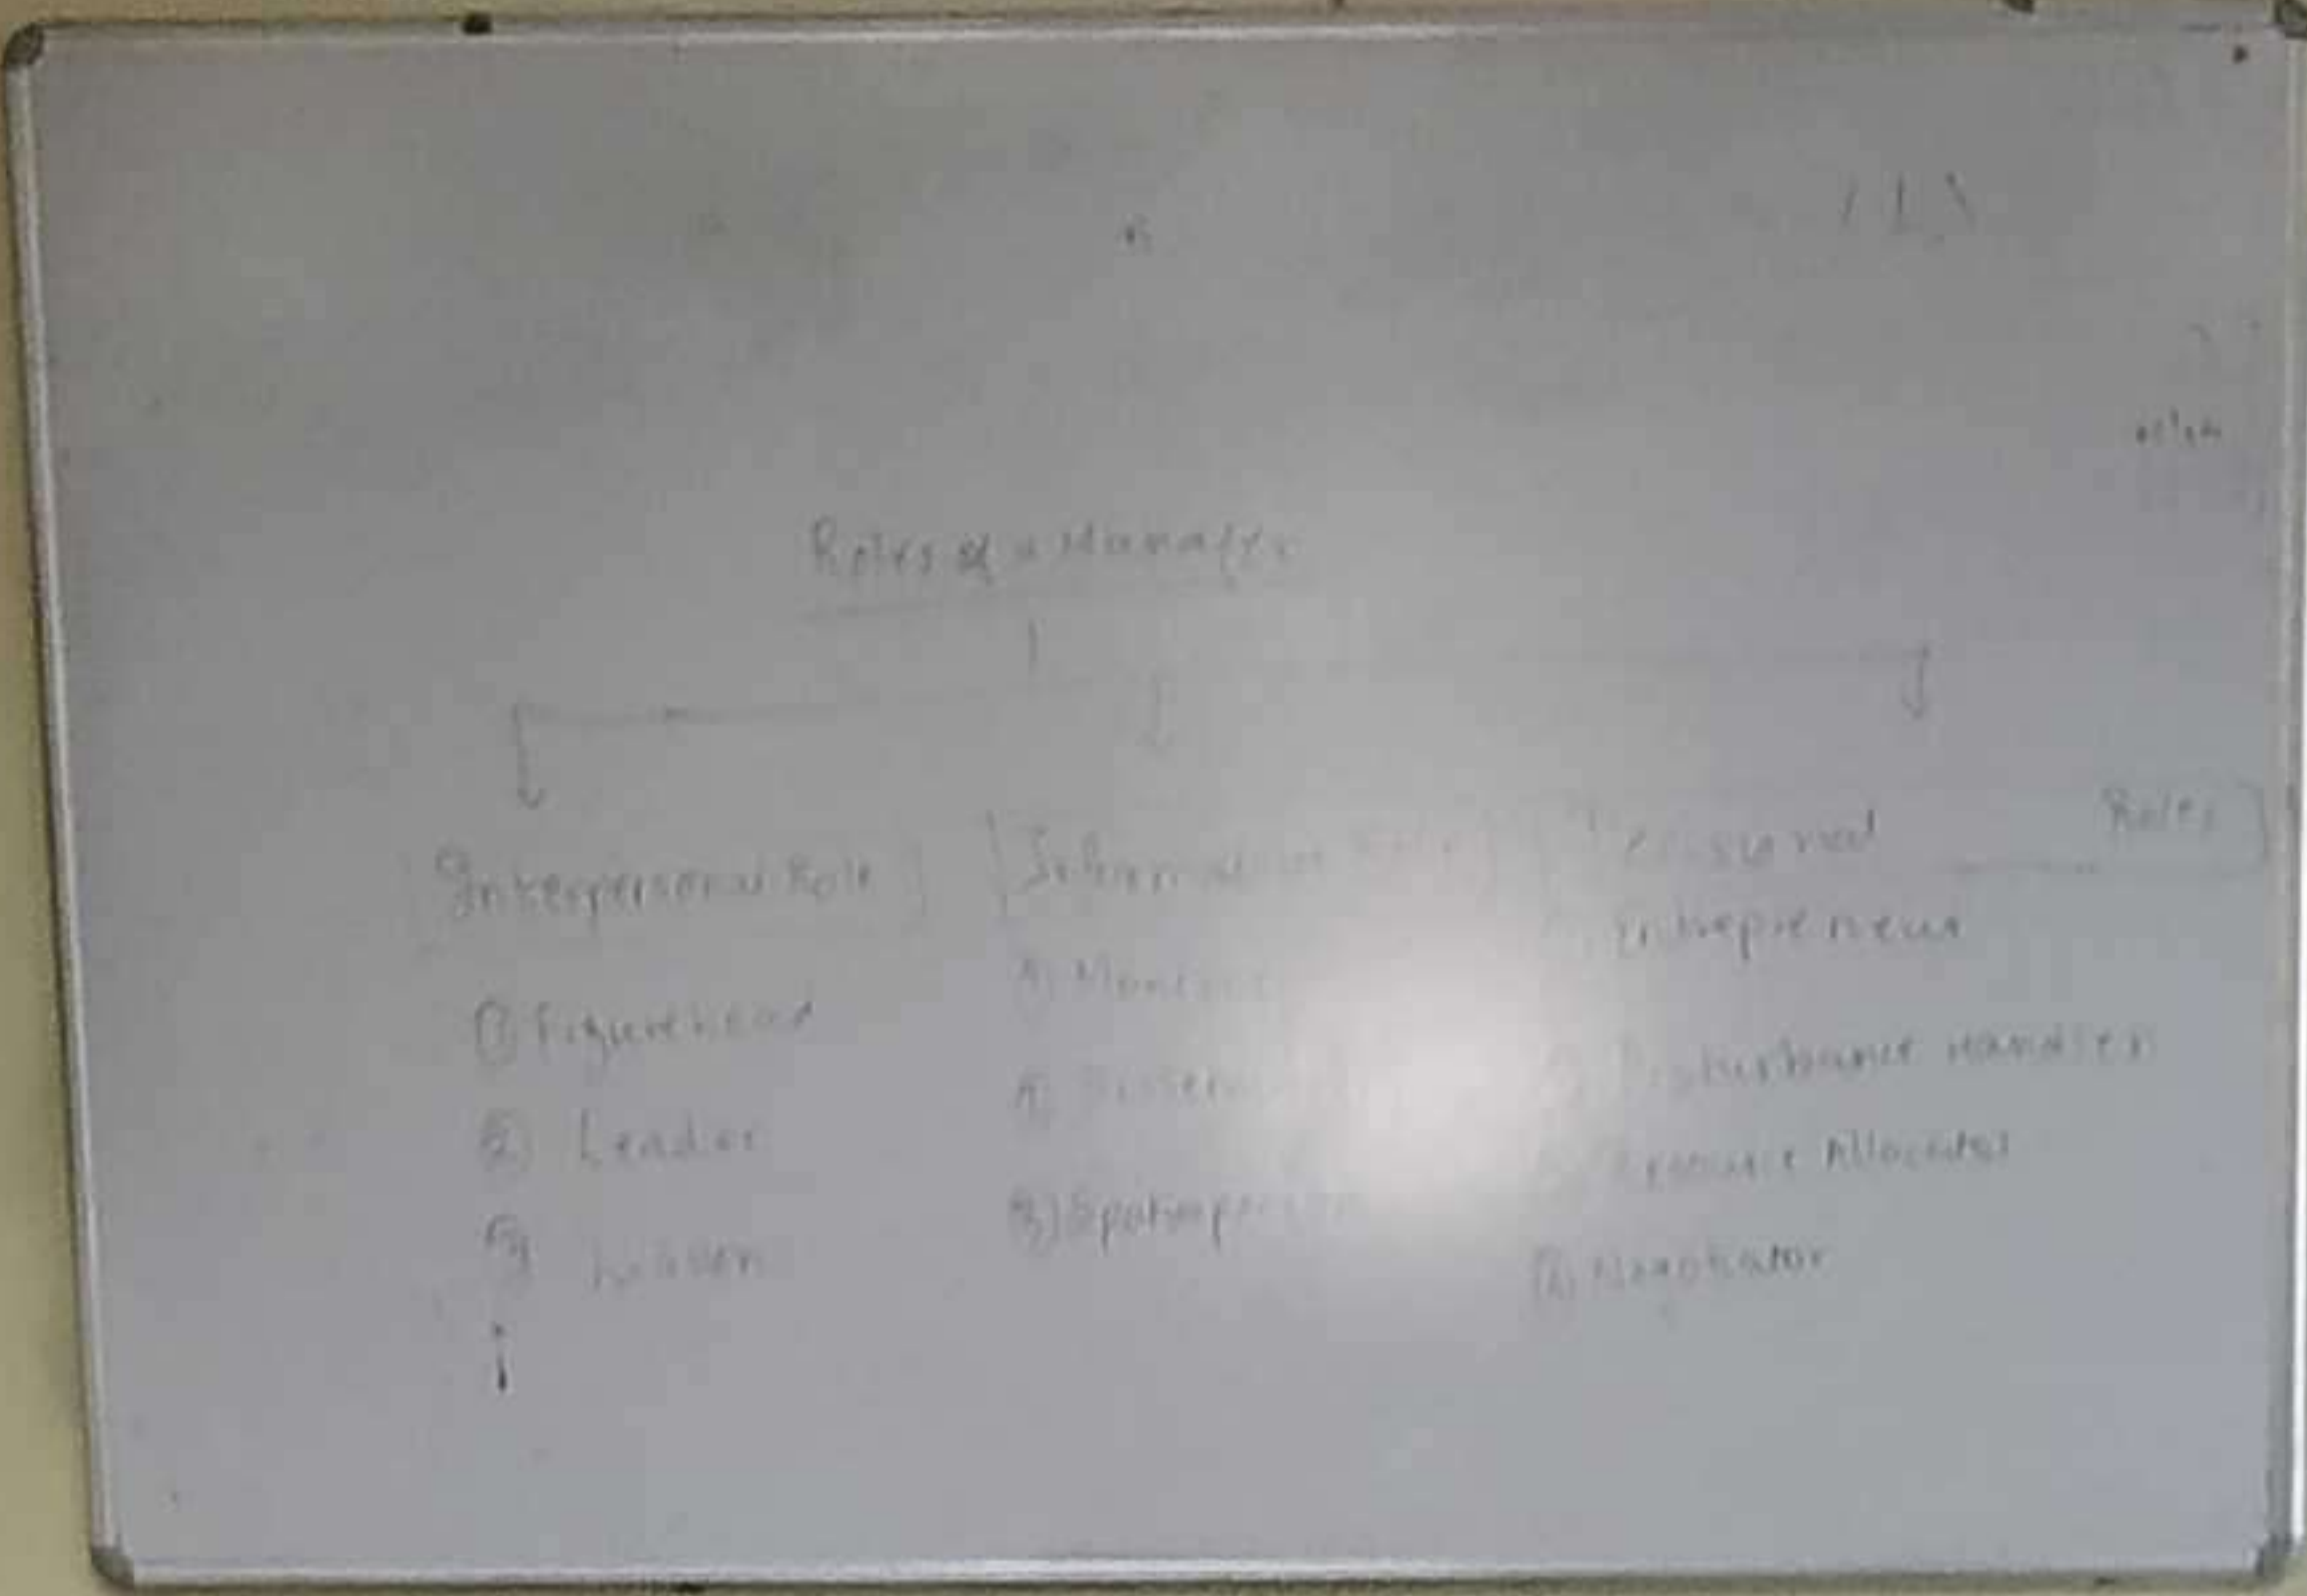 Roles of a Manager
Interpersonal Role
① Figurehead
② Leader
③ Liaison
Informational
1) Monitor
3) Spokesper
Decisional Roles
Entrepreneur
Disturbance Handler
Resource Allocator
④ Negotiator